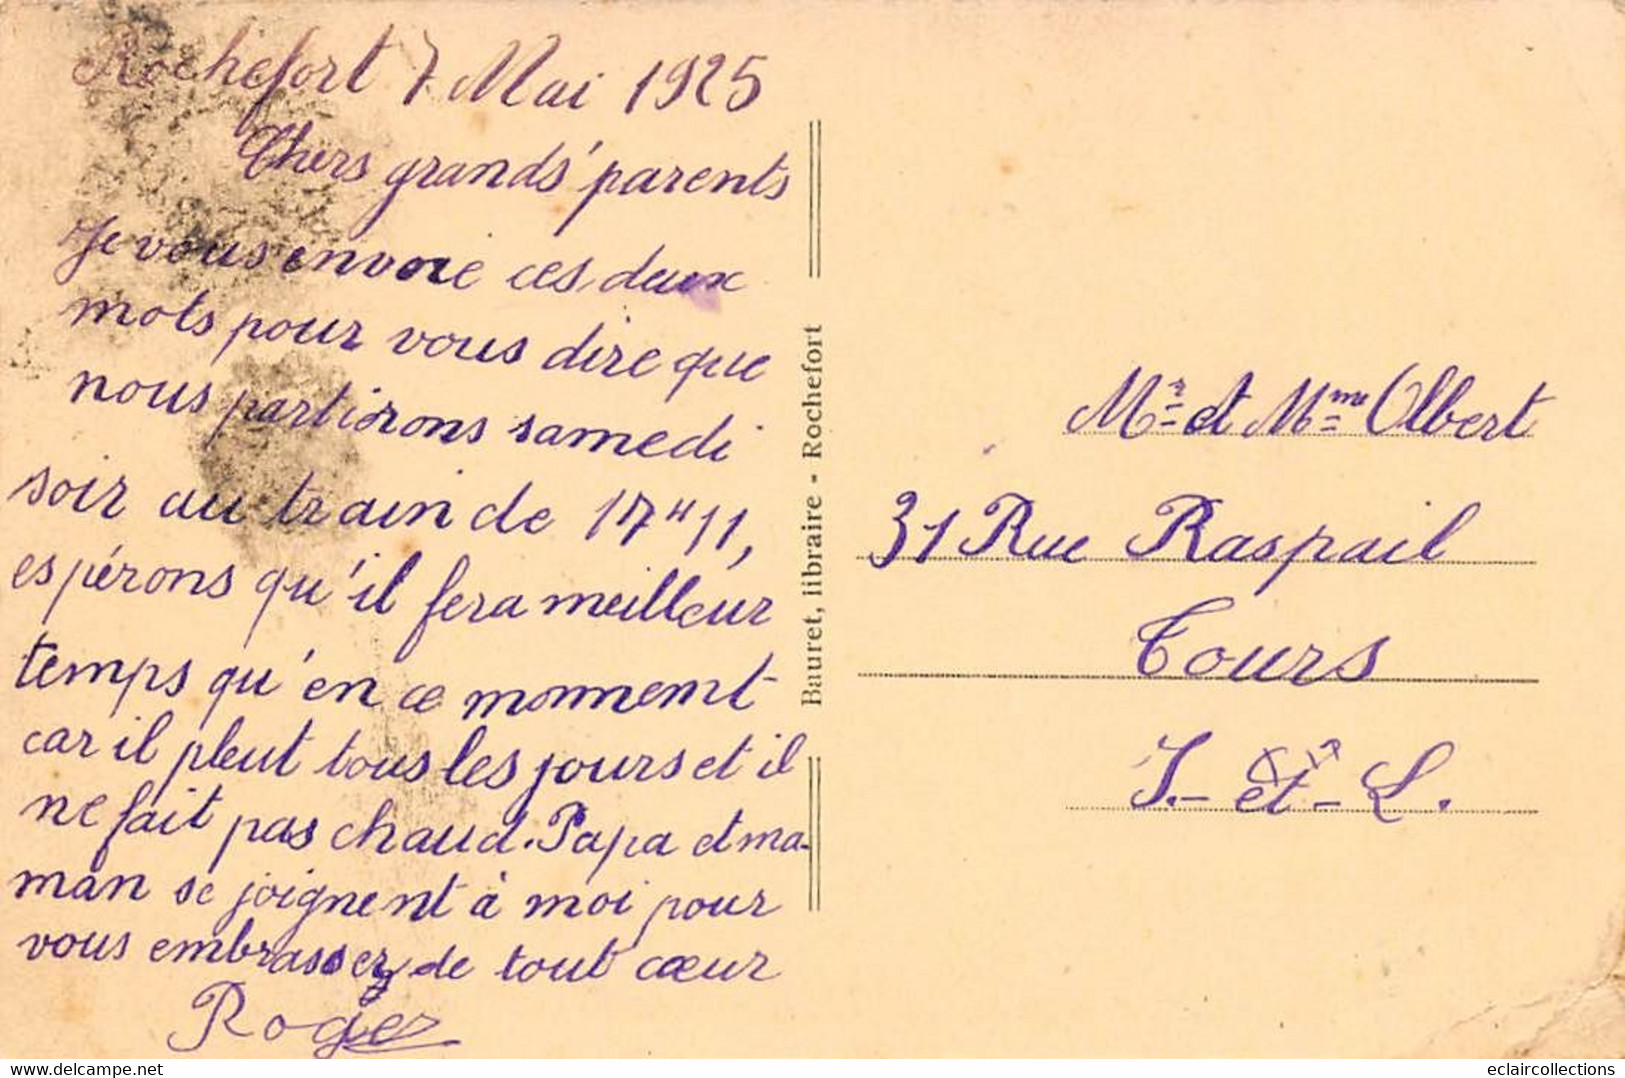 Rochefort 7 Mai 1925
Chers grands'parents
Je vous envoie ces deux
mots pour vous dire que
nous partirons samedi
soir au train de 17H11,
espérons qu'il fera meilleur
temps qu'en ce moment
car il pleut tous les jours et il
ne fait pas chaud. Papa et ma-
man se joignent à moi pour
vous embrasser de tout cœur
Roger
Bauret, libraire - Rochefort
Mr et Mme Olbert
31 Rue Raspail
Tours
I.- et - L.
eclaircollections